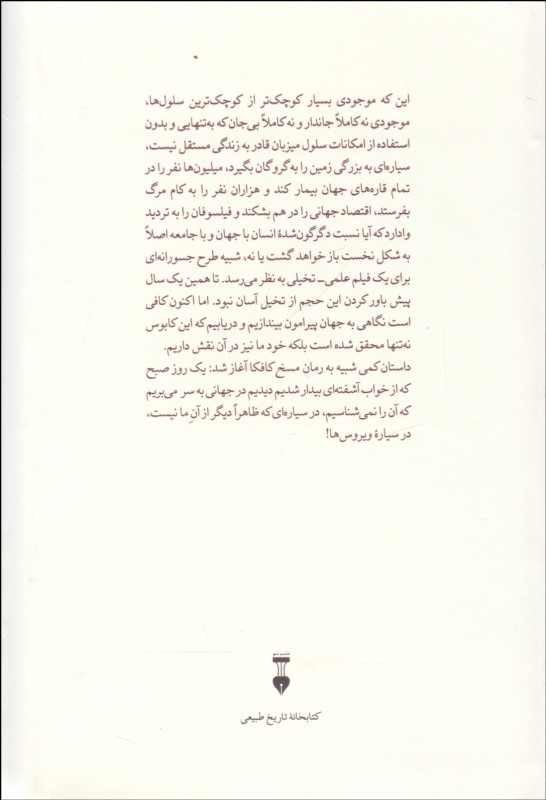 این که موجودی بسیار کوچک‌تر از کوچک‌ترین سلول‌ها،
موجودی نه کاملاً جاندار و نه کاملاً بی‌جان که به‌تنهایی و بدون
استفاده از امکانات سلول میزبان قادر به زندگی مستقل نیست،
سیاره‌ای به بزرگی زمین را به گروگان بگیرد، میلیون‌ها نفر را در
تمام قاره‌های جهان بیمار کند و هزاران نفر را به کام مرگ
بفرستد، اقتصاد جهانی را در هم بشکند و فیلسوفان را به تردید
وادارد که آیا نسبت دگرگون‌شدهٔ انسان با جهان و با جامعه اصلاً
به شکل نخست باز خواهد گشت یا نه، شبیه طرح جسورانه‌ای
برای یک فیلم علمی‌ـ تخیلی به نظر می‌رسد. تا همین یک سال
پیش باور کردن این حجم از تخیل آسان نبود. اما اکنون کافی
است نگاهی به جهان پیرامون بیندازیم و دریابیم که این کابوس
نه‌تنها محقق شده است بلکه خود ما نیز در آن نقش داریم.
داستان کمی شبیه به رمان مسخ کافکا آغاز شد: یک روز صبح
که از خواب آشفته‌ای بیدار شدیم دیدیم در جهانی به سر می‌بریم
که آن را نمی‌شناسیم، در سیاره‌ای که ظاهراً دیگر از آنِ ما نیست،
در سیارهٔ ویروس‌ها!
نشر نو
کتابخانهٔ تاریخ طبیعی